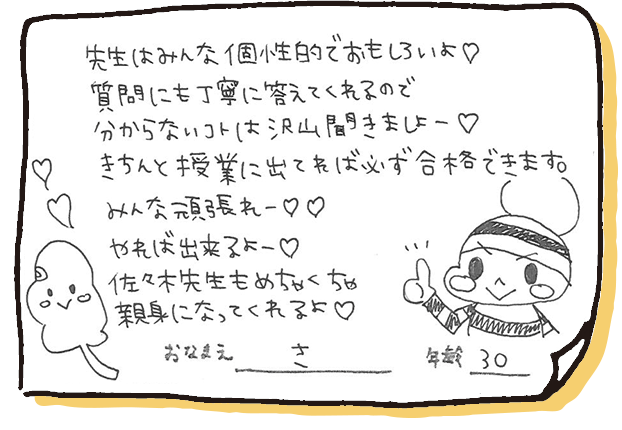 先生はみんな個性的でおもしろいよ♡
質問にも丁寧に答えてくれるので
分からないコトは沢山聞きましょー♡
きちんと授業に出てれば必ず合格できます。
みんな頑張れー♡♡
やれば出来るよー♡
佐々木先生もめちゃくちゃ
親身になってくれるよ♡
おなまえ さ 年齢 30